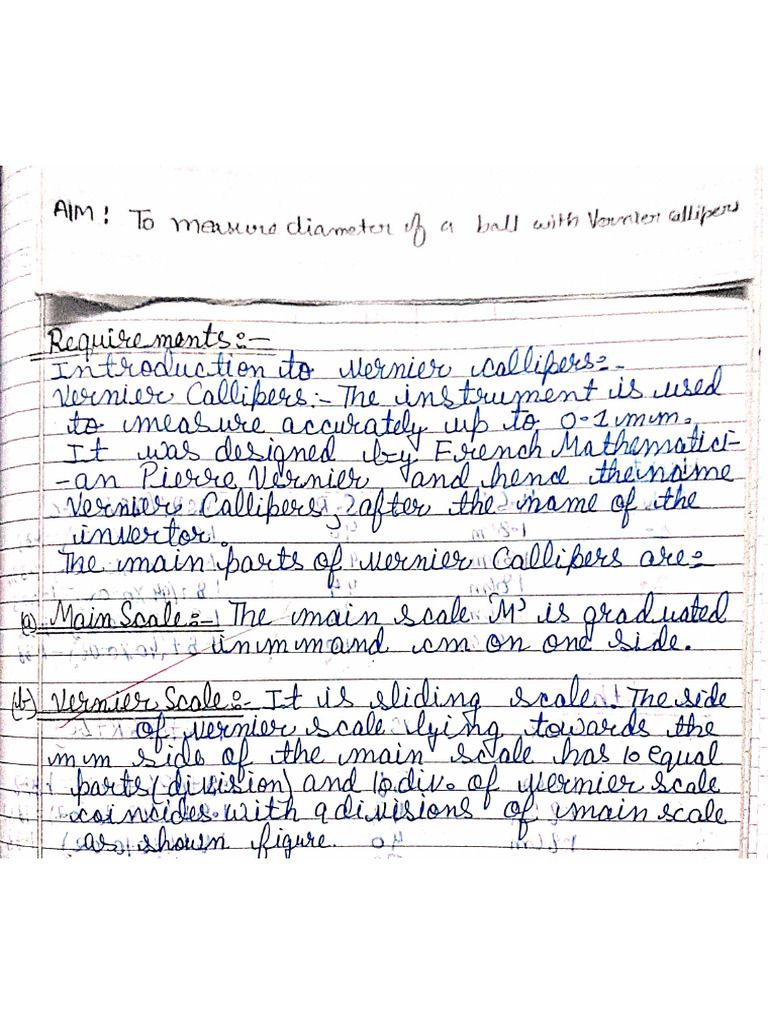 AIM: To measure diameter of a ball with Vernier callipers
Requirements:-
Introduction to vernier callipers:-
Vernier Callipers:- The instrument is used
to measure accurately up to 0.1 mm.
It was designed by French Mathematici-
-an Pierre Vernier and hence the name
Vernier Callipers, after the name of the
invertor.
The main parts of vernier Callipers are:-
(a) Main Scale:- The main scale 'M' is graduated
in mm and cm on one side.
(b) Vernier Scale:- It is sliding scale. The side
of vernier scale lying towards the
mm side of the main scale has 10 equal
parts (division) and 10 div. of vernier scale
coincides with 9 divisions of main scale
as shown figure.